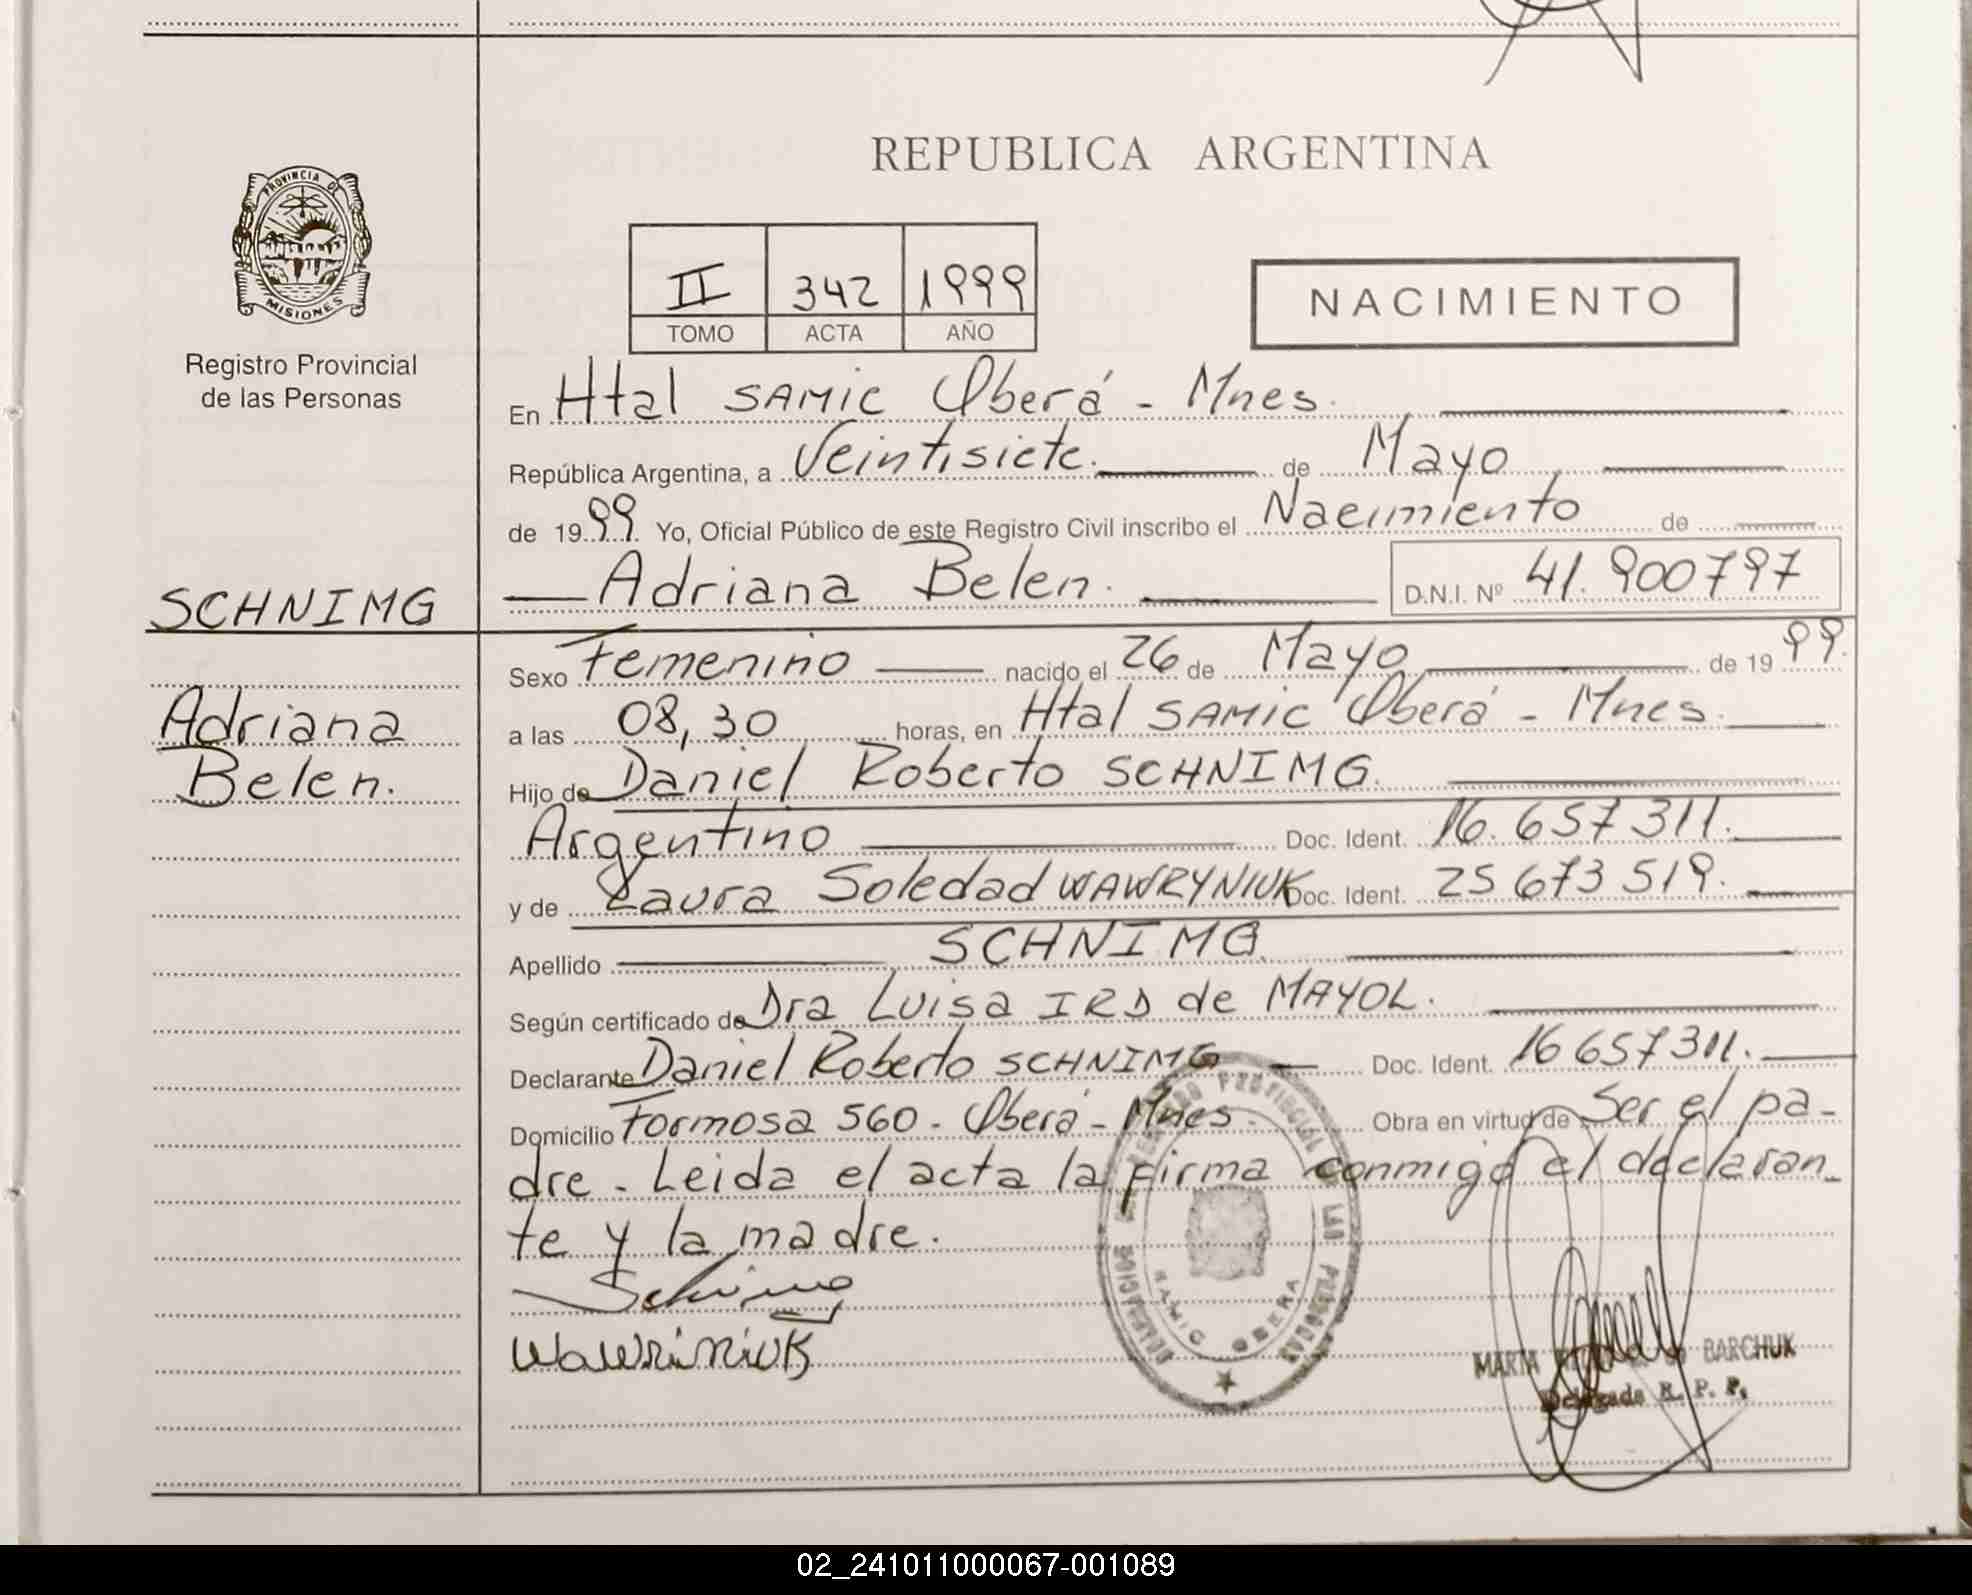 REPUBLICA ARGENTINA
PROVINCIA DE
MISIONES
Registro Provincial
de las Personas
II 342 1999
TOMO ACTA AÑO
NACIMIENTO
En Htal SAMIC Oberá - Mnes.
República Argentina, a Veintisiete. de Mayo
de 1999. Yo, Oficial Público de este Registro Civil inscribo el Nacimiento de
SCHNIMG
Adriana Belen. D.N.I. Nº 41.900797
Sexo Femenino nacido el 26 de Mayo de 1999.
Adriana
a las 08,30 horas, en Htal SAMIC Oberá - Mnes.
Belen.
Hijo de Daniel Roberto SCHNIMG.
Argentino Doc. Ident. 16.657311.
y de Laura Soledad WAWRYNIUK Doc. Ident. 25673519.
Apellido SCHNIMG
Según certificado de Dra Luisa IRD de MAYOL.
Declarante Daniel Roberto SCHNIMG Doc. Ident. 16657311.
Domicilio Formosa 560 - Oberá - Mnes. Obra en virtud de Ser el pa-
dre - Leida el acta la firma conmigo el declaran-
te y la madre.
Schnimg
Wawriniuk
SAMIC OBERA
MARIA BARCHUK
Delegada R. P. P.
02_241011000067-001089